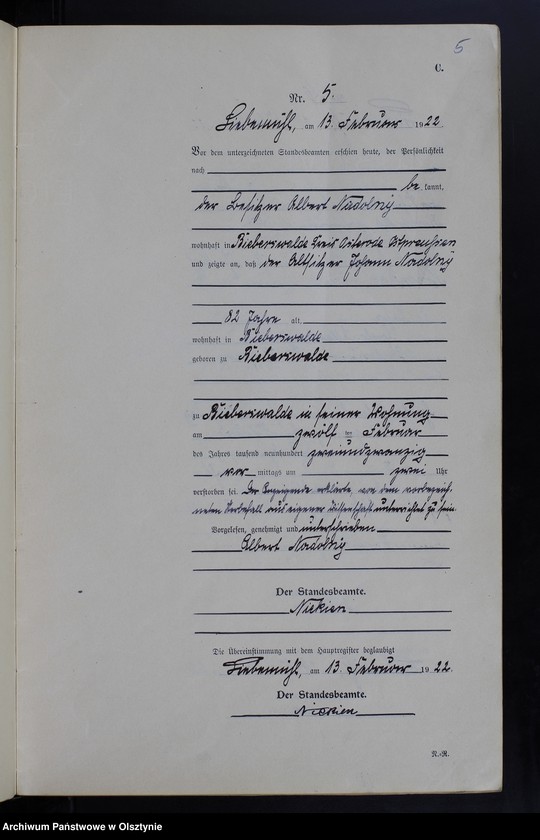 5
C.
Nr. 5.
Liebemühl, am 13. Februar 1922
Vor dem unterzeichneten Standesbeamten erschien heute, der Persönlichkeit
nach
be kannt,
der Besitzer Albert Nadolny
wohnhaft in Bieberswalde Kreis Osterode Ostpreußen
und zeigte an, daß der Altsitzer Johann Nadolny
82 Jahre alt,
wohnhaft in Bieberswalde
geboren zu Bieberswalde
zu Bieberswalde in seiner Wohnung
am zwölf ten Februar
des Jahres tausend neunhundert zweiundzwanzig
vor mittags um zwei Uhr
verstorben sei. Der Anzeigende erklärte, von dem vorbezeich-
neten Sterbefall aus eigener Wissenschaft unterrichtet zu sein.
Vorgelesen, genehmigt und unterschrieben
Albert Nadolny
Der Standesbeamte.
Nickien
Die Übereinstimmung mit dem Hauptregister beglaubigt
Liebemühl, am 13. Februar 1922.
Der Standesbeamte.
Nickien
N.-R.
Archiwum Państwowe w Olsztynie